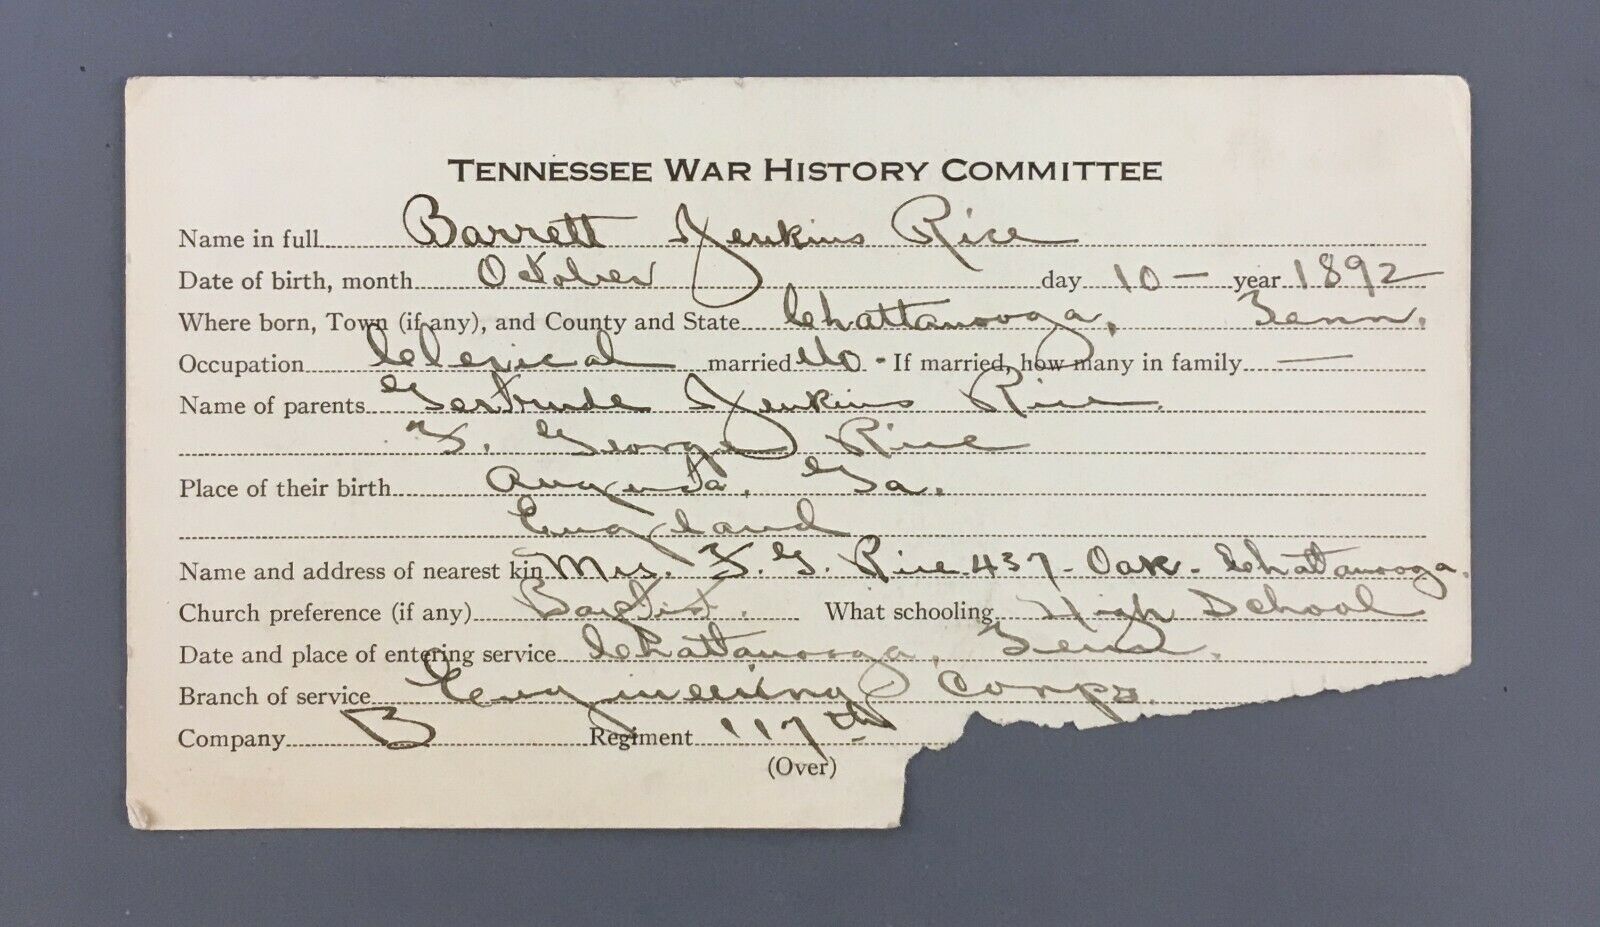 TENNESSEE WAR HISTORY COMMITTEE
Name in full Barrett Jenkins Rice
Date of birth, month October day 10 — year 1892
Where born, Town (if any), and County and State Chattanooga, Tenn.
Occupation Clerical married No - If married, how many in family —
Name of parents Gertrude Jenkins Rice.
F. George Rice
Place of their birth Augusta, Ga.
England
Name and address of nearest kin Mrs. F. G. Rice 437 - Oak - Chattanooga.
Church preference (if any) Baptist. What schooling High School
Date and place of entering service Chattanooga, Tenn.
Branch of service Engineering Corps.
Company B Regiment 117th
(Over)